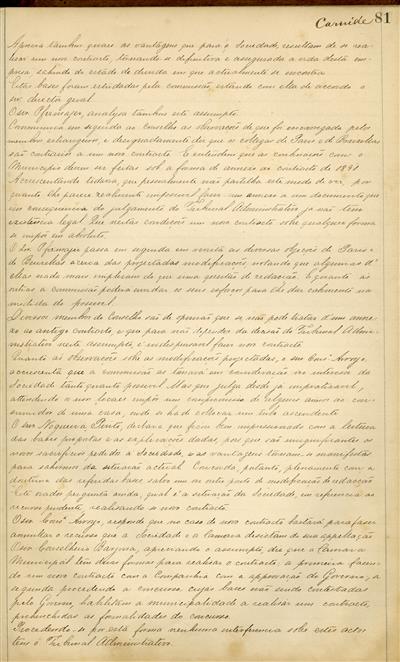 Carnide 81
Aprecia tambem quaes as vantagens que para a Sociedade, resultam de se rea-
lisar um novo contracto, tornando-se definitiva e assegurada a vida desta em-
presa, sahindo do estado de duvida em que actualmente se encontra.
Estas bases foram estudadas pela commissão, estando com ellas de accordo o
snr. director geral.
O snr. Pfarmager, analysa tambem este assumpto.
Communica em seguida ao Conselho as observações de que foi encarregado pelos
membros estrangeiros, e designadamente diz que os collegas de Paris e de Bruxellas
são contrarios a um novo contracto. E entendem que as combinações com o
Municipio devem ser feitas sob a forma de annexo ao contracto de 1891.
Accrescentando todavia, que pessoalmente não partilha este modo de ver, por
quanto lhe parece realmente impossivel fazer um annexo a um documento que
em consequencia do julgamento do Tribunal Administrativo já não tem
existencia legal. Em nestas condições um novo contracto sobre qualquer forma
se impõe em absoluto.
O snr. Pfarmager passa em seguida em revista as diversas objeções de Paris e
de Bruxellas acerca das projectadas modificações, notando que algumas d'
ellas nada mais implicam do que uma questão de redacção. E quanto ás
outras a commissão poderá envidar os seus esforços para lhe dar cabimento na
medida do possivel.
Diversos membros do Conselho são de opinião que se não pode tratar d'um anne-
xo ao antigo contracto, e que para não depender da decisão do Tribunal Admi-
nistrativo neste assumpto, é indispensavel fazer novo contracto.
Quanto ás observações sobre as modificações projectadas, o snr. Consº Arroyo,
accrescenta que a commissão as tomará em consideração no interesse da
Sociedade tanto quanto possivel. Mas que julga desde já impraticavel,
attendendo a usos locaes impôr um compromisso de alguns annos ao con-
sumidor de uma casa, onde se haja de collocar um tubo ascendente.
O snr. Nogueira Pinto, declara que ficou bem impressionado com a leitura
das bases propostas e as explicações dadas, pois que são insignificantes os
novos sacrificios pedidos á Sociedade, e as vantagens tornam-se manifestas
para sahirmos da situação actual. Concorda, portanto, plenamente com a
doutrina das referidas bases, salvo um ou outro ponto de modificação de redacção.
Este orador pergunta ainda, qual é a situação da Sociedade, em referencia ao
recurso pendente, realisando-se novo contracto.
O snr. Consº Arroyo, responde que no caso de novo contracto bastará para fazer
annullar o recurso que a Sociedade e a Camara desistam da sua appellação.
O snr. Conselheiro Barjona, apreciando o assumpto, diz que a Camara
Municipal tem duas formas para realisar o contracto, a primeira fazen-
do um novo contracto com a Companhia com a approvação do Governo, a
segunda procedendo a concurso, cujas bases não sendo contestadas
pelo Governo habilitam a municipalidade a realisar um contracto,
preenchidas as formalidades do concurso.
Procedendo-se por esta forma nenhuma interferencia sobre estes actos
tem o Tribunal Administrativo.